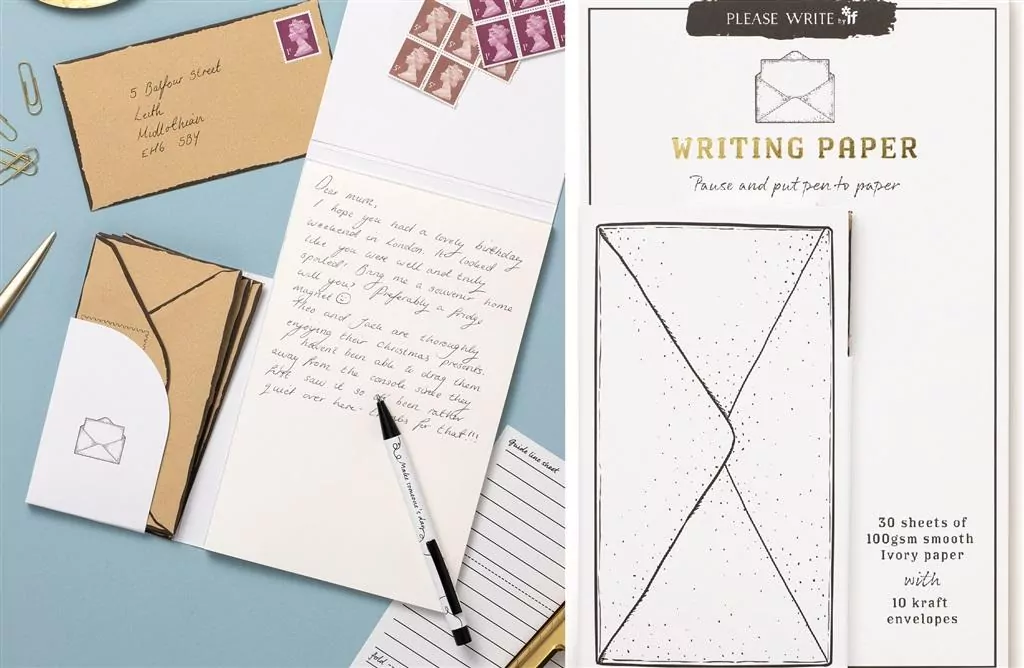 5 Balfour Street
Leith
Midlothian
EH6 5BY
1P
1P
5P
5P
Dear mum,
I hope you had a lovely birthday
weekend in London. It looked
like you were well and truly
spoiled! Bring me a souvenir home
will you? Preferably a fridge
magnet
Theo and Jack are thoroughly
enjoying their Christmas presents.
I haven't been able to drag them
away from the console since they
first saw it so been rather
quiet over here - for that!!!
make someone's day
guide line sheet
fold
PLEASE WRITE by if
WRITING PAPER
Pause and put pen to paper
30 sheets of
100gsm smooth
Ivory paper
with
10 kraft
envelopes